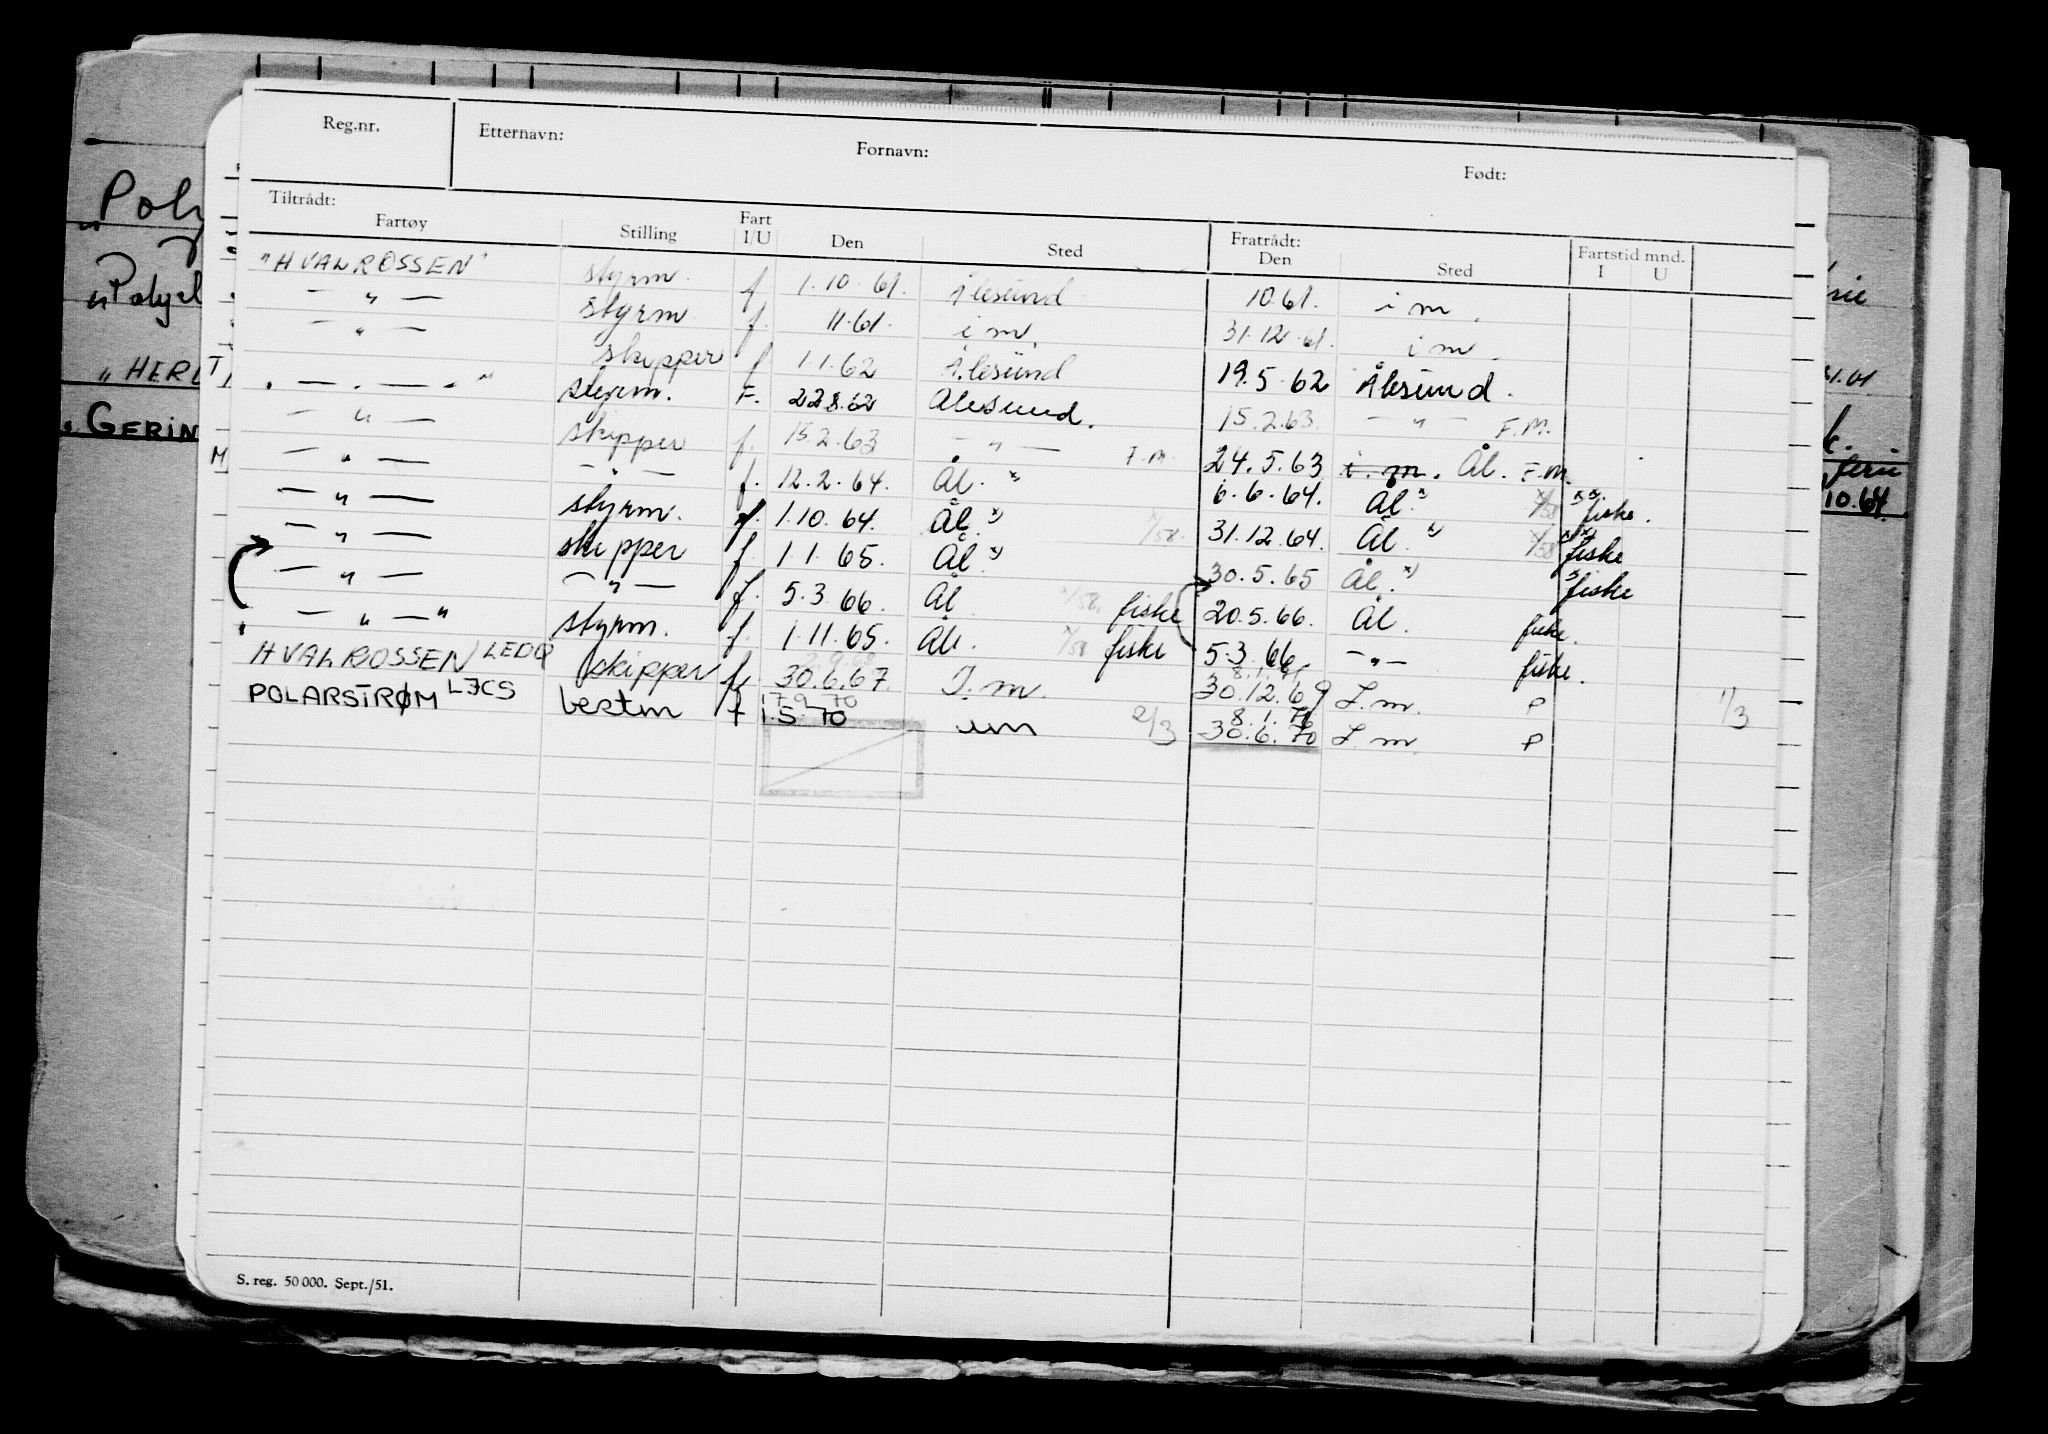 Reg.nr. Etternavn: Fornavn: Født:
Tiltrådt: Fratrådt:
Fartøy Stilling Fart I/U Den Sted Den Sted Fartstid mnd. I U
"HVALROSSEN" styrm. f 1.10.61. Ålesund 10.61. i m.
— " — styrm f. 11.61. i m. 31.12.61. i m.
— " — skipper f 1.1.62 Ålesund 19.5.62 Ålesund.
. — . — . " styrm. F. 22.8.62 Ålesund. 15.2.63. — " — F.M.
— " — skipper f. 15.2.63 — " — F.M. 24.5.63 i.m. Ål. F.M.
— " — — " — f. 12.2.64. Ål. x) 6.6.64. Ål. x) x/58 xx fiske.
— " — styrm. f. 1.10.64. Ål. x) x/58. 31.12.64. Ål. x) x/58 xx) fiske
— " — skipper f. 1.1.65. Ål. x) 30.5.65 Ål. x) x fiske
— " — — " — f. 5.3.66. Ål x/58. fiske 20.5.66. Ål. fiske.
— " — " styrm. f. 1.11.65. Ål. x/58 fiske 5.3.66. — " — fiske.
HVALROSSEN LEDQ skipper f. 30.6.67. I.m. 30.12.69 I.m. P 1/3
POLARSTRØM LJCS bestm f 17.9.70 1.5.70 im 2/3 8.1.71 30.6.70 I.m. P
S. reg. 50 000. Sept./51.
Poly
"Polyel
"HERL
T
GERIN
M
31.01
ferie
10.64.